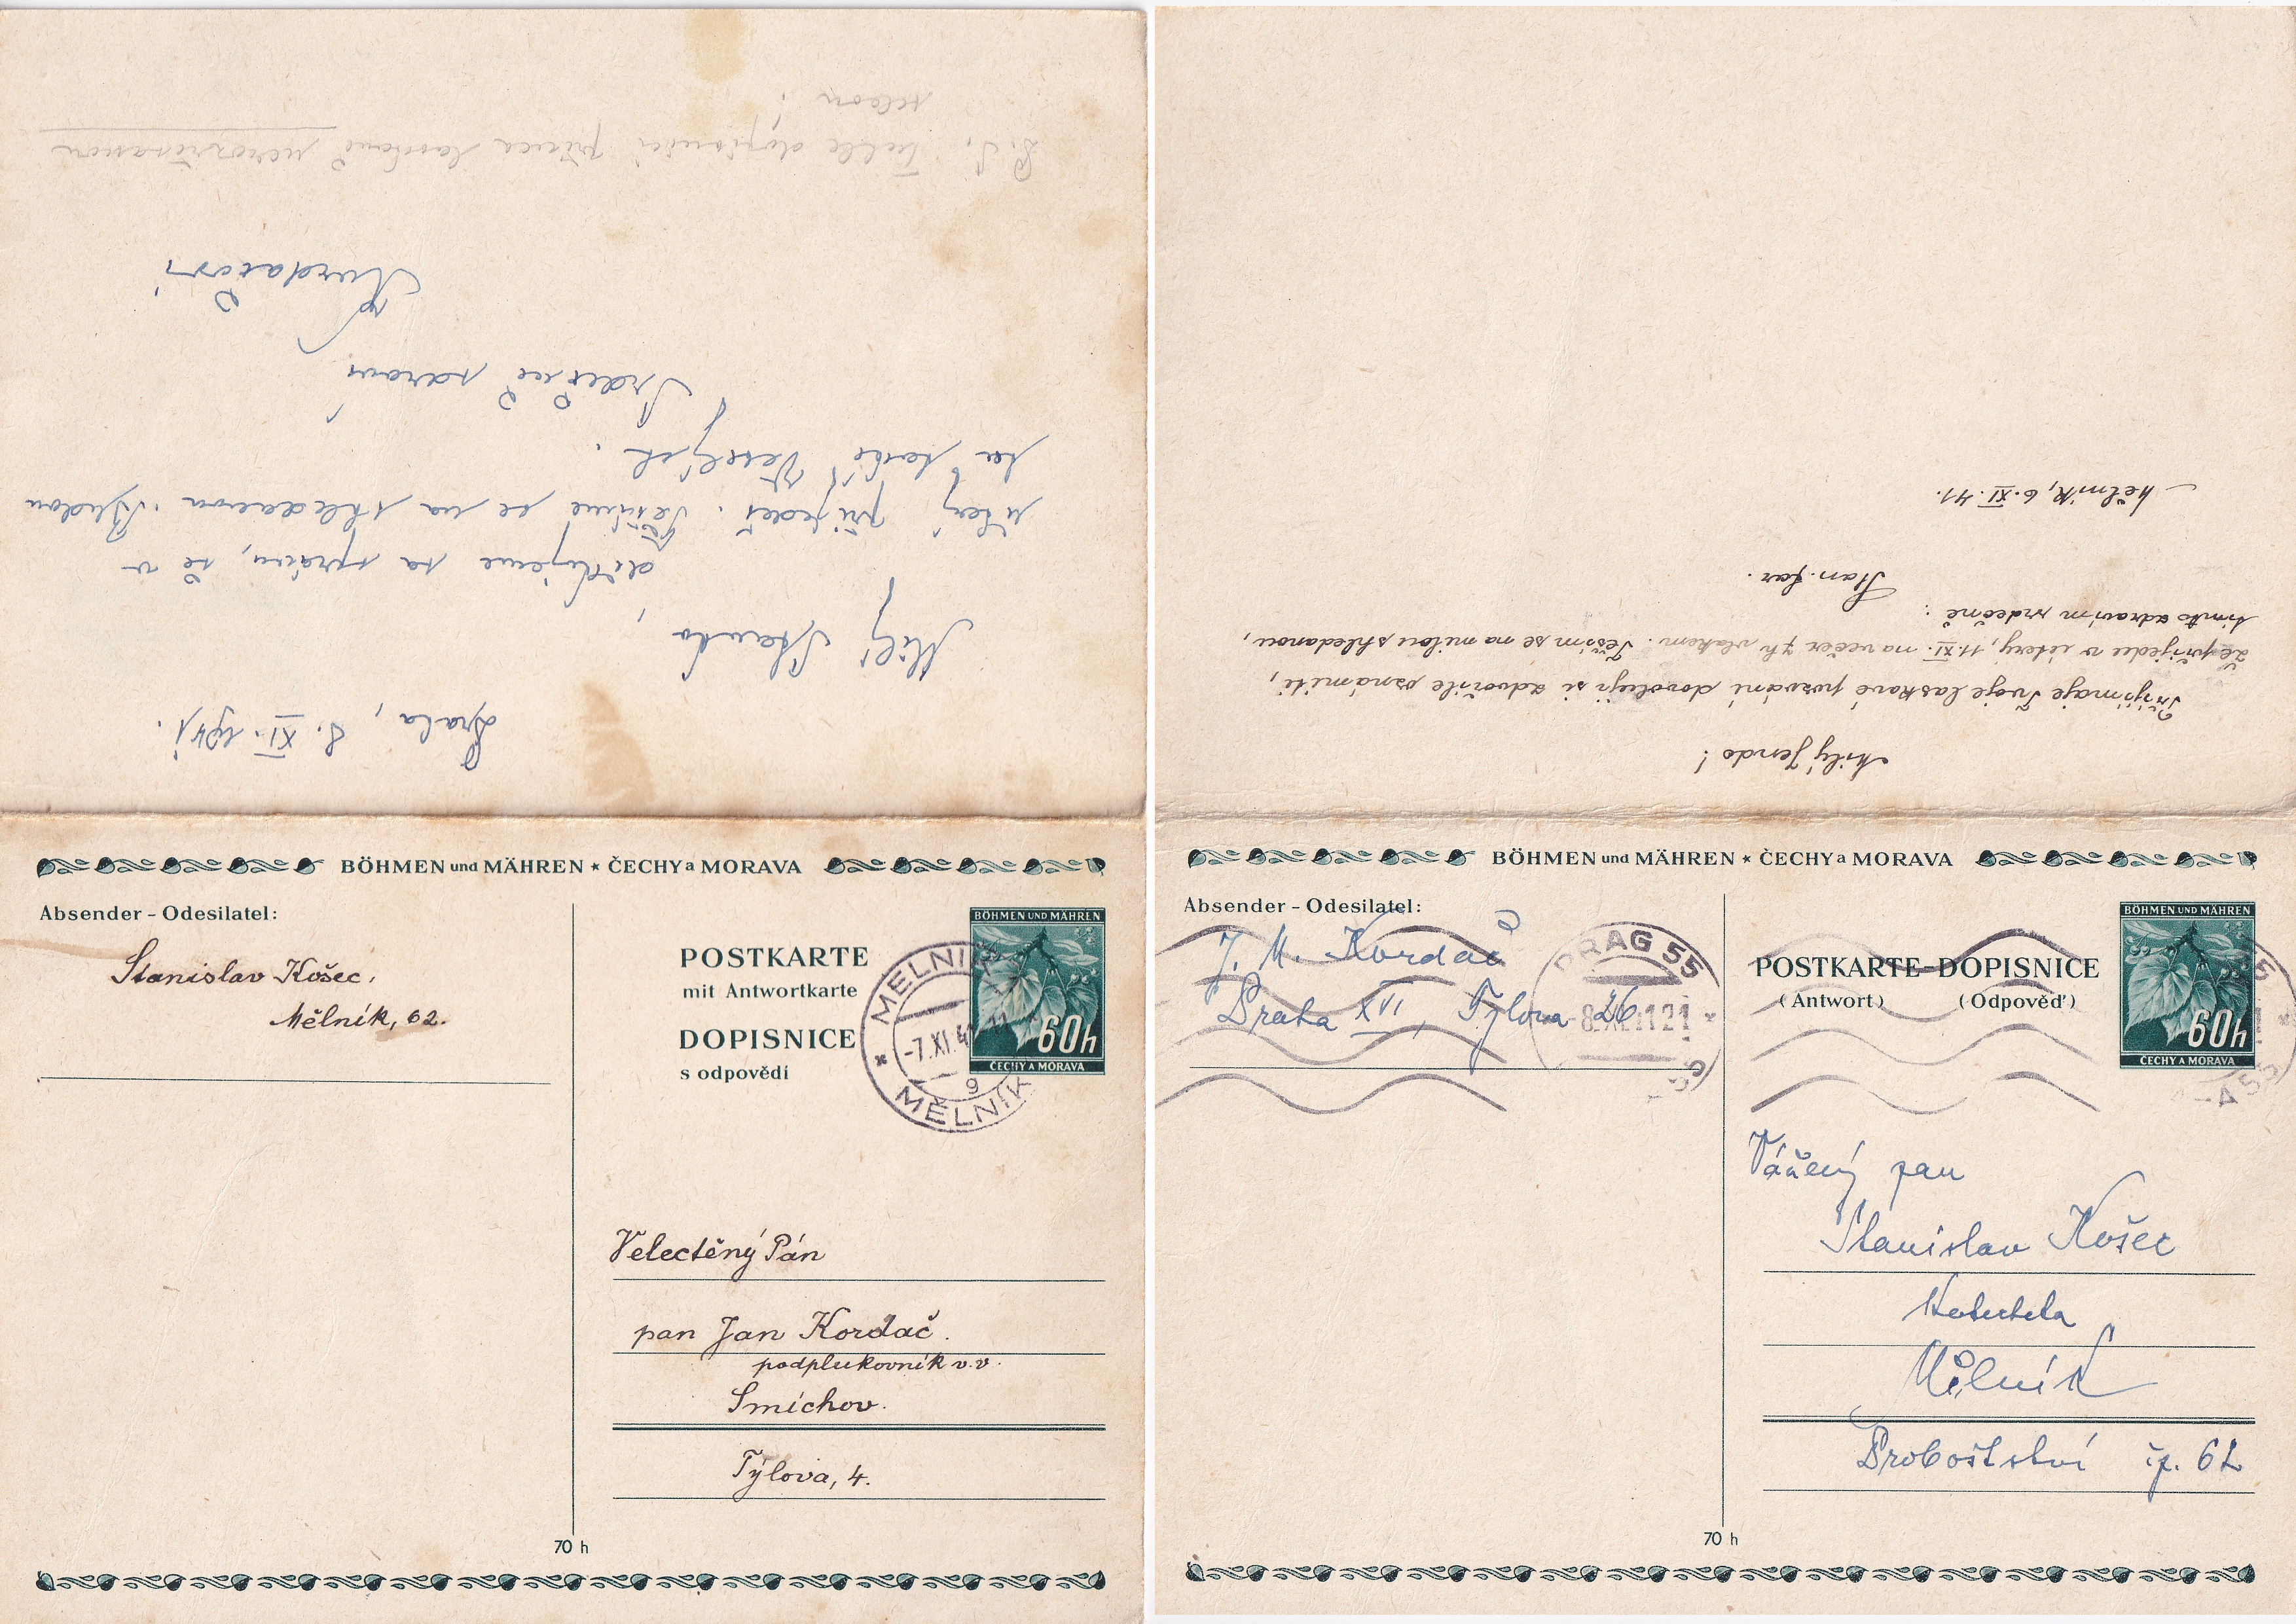 Praha, 8. XI. 1941.
Milý Stando,
děkujeme za zprávu, že v
úterý přijedeš. Těšíme se na shledanou. Budou
tu také
Srdečně zdraví
Kordačovi
P.S. Tuhle dopisnici příteli laskavě
BÖHMEN und MÄHREN * ČECHY a MORAVA
Absender - Odesilatel:
Stanislav Košec,
Mělník, 62.
POSTKARTE
mit Antwortkarte
DOPISNICE
s odpovědí
BÖHMEN UND MÄHREN
60h
ČECHY A MORAVA
MELNIK
-7.XI.41
9
MĚLNÍK
Velectěný Pán
pan Jan Kordač.
podplukovník v.v.
Smíchov.
Tylova, 4.
70 h
Milý Jendo!
Přijímaje Tvoje laskavé pozvání dovoluji si zdvořile oznámiti,
že přijedu v úterý, 11.XI. na večer 7h vlakem. Těším se na milou shledanou,
tímto zdravím srdečně:
Stan. Jar.
Mělník, 6.XI.41.
BÖHMEN und MÄHREN * ČECHY a MORAVA
Absender - Odesilatel:
J. M. Kordač
Praha XVI, Tylova 26
PRAG 55
POSTKARTE-DOPISNICE
(Antwort) (Odpověď)
BÖHMEN UND MÄHREN
60h
ČECHY A MORAVA
Vážený pan
Stanislav Košec
Mělník
Proboštství čp. 62
70 h